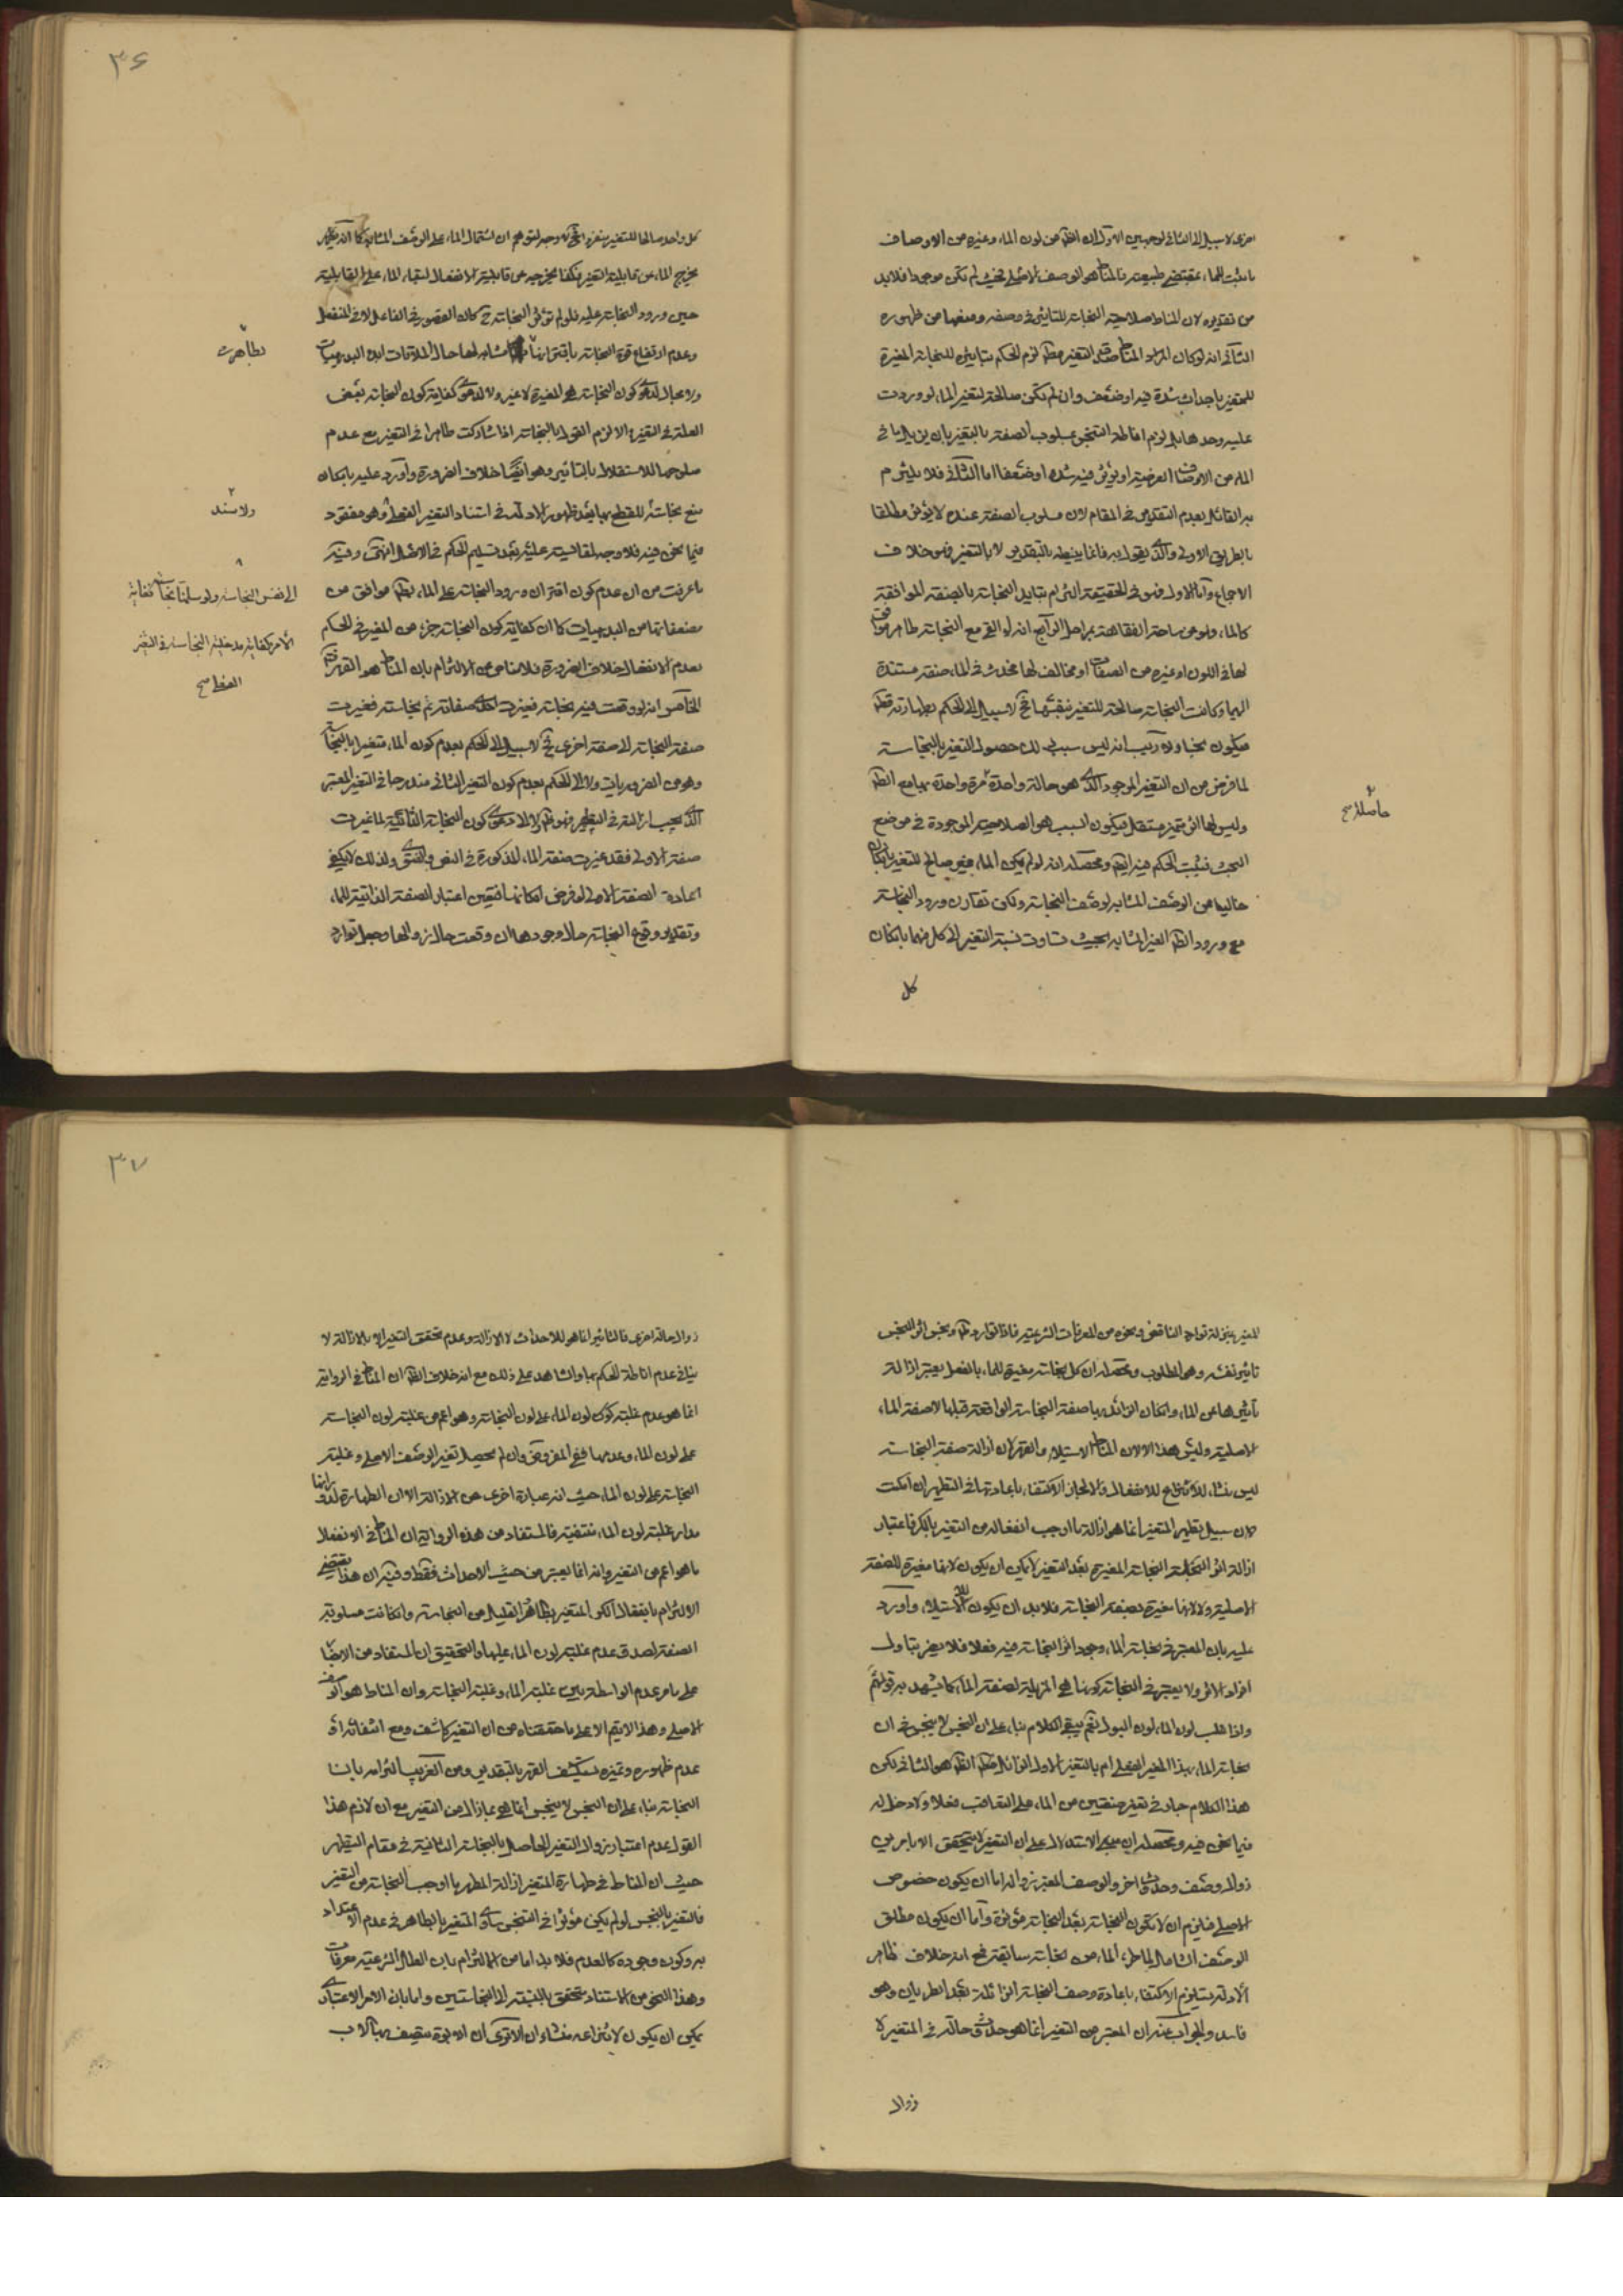 اخرى لا سبيل الى الثانى لوجهين الاول ان الظ من لون الماء وغيره من الاوصاف
ما ثبت للماء بمقتضى طبيعته فالمناط هو الوصف الاصلى فحيث لم تكن موجودا فلا بد
من تقديره لان المناط صلاحية النجاسة للتاثير فى وصفه ومنعها من ظهوره
الثانى انه لو كان المراد المناط التغير مطلقا لزم الحكم بتاثير النجاسة المغيرة
للمتغير باحداث شدة فيه او ضعف وان لم تكن صالحة لتغير الماء لو وردت
عليه وحدها بل لزم اناطة التنجس بمسلوب الصفة بالتغير بان يزيل ما فى
الماء من الاوصاف العرضية او يؤثر فيه شدة او ضعفا اما الثانى فلا يلتزم
به القائل بعدم التقدير فى المقام لان مسلوب الصفة عنده لا يؤثر مطلقا
بالطريق الاولى والذى يقول به فانما ينيطه بالتقدير لا بالتغير فهو خلاف
الاجماع واما الاول فهو فى الحقيقة التزام بتاثير النجاسة بالصفة الموافقة
كالماء وهو من ساحة الفقاهة بمراحل الرابع انه لو القى مع النجاسة طاهر موافق
لها فى اللون او غيره من الصفات او مخالف لها فحدث فى الماء صفة مستندة
اليهما وكانت النجاسة صالحة للتغير بنفسها فح لا سبيل الى الحكم بطهارته قطعا
فيكون نجسا ولا ريب انه ليس سبب ذلك حصول التغير بالنجاسة
لما فرض من ان التغير الموجود الذى هو حالة واحدة مرة واحدة بهما مع الظ
وليس لها اثر متميز مستقل فيكون السبب هو الصلاحية الموجودة فى موضع
البحث فثبت الحكم فيه ايضا ومحصله انه لو لم يكن الماء بغير صالح للتغير بان كان
خاليا من الوصف المشابه لوصف النجاسة ولكن تقارن ورود النجاسة
مع ورود الظ الغير المشابه بحيث تساوت نسبة التغير الى كل منهما بان كان
كل
حاصلة صح
٣٦
كل واحد صالحا للتغير منفردا فح لا وجه لتوهم ان اشتمال الماء على الوصف المشابه كما انه
يخرج الماء من قابلية التغير فكذا يخرجه عن قابلية الانفعال لبقاء الماء على القابلية
حين ورود النجاسة عليه فلو لم تؤثر النجاسة ح كان القصور فى الفاعل لا فى المنفعل
وعدم ارتفاع قوة النجاسة باقترانها مشابه لها حال الملاقات ابده البديهيات
ولا مجال لدعوى كون النجاسة هى المغيرة لا غير ولا لدعوى كفاية كون النجاسة بعض
العلة فى التغير والا لزم القول بالنجاسة اذا شاركت طاهرا فى التغير مع عدم
صلوحها للاستقلال بالتاثير وهو ايضا خلاف الضرورة واورد عليه بامكان
منع نجاسته للقطع بها بعد ظهور الادلة فى استناد التغير الفعلى وهو مفقود
فيما نحن فيه فلا وجه لمقايسته عليه بعد تسليم الحكم فى الاصل انتهى وفيه
ما عرفت من ان عدم كون اقتران ورود النجاسة على الماء بظ موافق من
مضعفاتها من البديهيات كما ان كفاية كون النجاسة جزء من المغير فى الحكم
بعدم الانفعال خلاف الضرورة فلا مناص عن الالتزام بان المناط هو القهر
الخامس انه لو وقعت فيه نجاسة فغيرت احدى صفاته ثم نجاسة فغيرت
صفة النجاسة الى صفة اخرى فح لا سبيل الى الحكم بعدم كون الماء متغيرا بالنجاسة
وهو من الضروريات ولا الى الحكم بعدم كون التغير الثانى مندرجا فى التغير المعتبر
الذى يجب ازالته فى التطهير فهو ظ ولا الى دعوى كون النجاسة الثانية لما غيرت
صفة الاولى فقد غيرت صفة الماء المذكورة فى النص والفتوى ولذلك لا يكفى
اعادة الصفة الاولى لو فرض امكانها فتعين اعتبار الصفة الذاتية للماء
وتقدير وقوع النجاسة حال وجودها ان وقعت حال زوالها وجعل توارد
بطاهرت
ولا سند
الى نفس النجاسة ولو سلمنا نجاسته كفاية
الامر كفاية مدخلية النجاسة فى التغير
الفعلى صح
المغير بمنزلة توارد النواقض ونحوه من المعرفات الشرعية فاذا توارد ظ ونجس اثر النجس
تاثير نفسه وهو المطلوب ومحصله ان كل نجاسة مغيرة للماء بالفعل يعتبر ازالة
تاثيرها عن الماء وان كان الزائل بها صفة النجاسة الواقعة قبلها لا صفة الماء
الاصلية وليس هذا الا لان المناط الاستيلاء والقهر لان ازالة صفة النجاسة
ليس منشاء للانفعال والا لجاز الاكتفاء باعادتها فى التطهير ان امكنت
لان سبيل تطهير المتغير انما هو ازالة ما اوجب انفعاله من التغير بالكر فاعتبار
ازالة اثر النجاسة المغيرة بعد التغير لا يمكن ان يكون لانها مغيرة للصفة
الاصلية ولا لانها مغيرة لصفة النجاسة فلا بد ان يكون للاستيلاء واورد
عليه بان المعتبر فى نجاسة الماء وجود اثر النجاسة فيه فعلا فلا يضر تبادل
افراد الاثر ولا يعتبر فى النجاسة كونها هى المزيلة لصفة الماء كما يشهد به قوله
واذا غلب لون الماء لون البول نعم يبقى الكلام بناء على ان النجس لا يتنجس فى ان
نجاسة الماء بهذا المغير الفعلى ام بالتغير الاول الزائل الظ هو الثانى لكن
هذا الكلام جار فى تغير صنفين من الماء على التعاقب فعلا ولا دخل له
فيما نحن فيه ومحصله ان مبنى الاستدلال على ان التغير لا يتحقق الا بامرين
زوال وصف وحدوث اخر والوصف المعتبر زواله اما ان يكون خصوص
الاصلى فيلزم ان لا تكون النجاسة بعد النجاسة مؤثرة واما ان يكون مطلق
الوصف الشامل لما طرء الماء من نجاسة سابقة فمع انه خلاف ظاهر
الادلة يستلزم الاكتفاء باعادة وصف النجاسة الزائلة بعد الطريان وهو
فاسد والجواب عنه ان المعتبر من التغير انما هو حدوث حالة فى المتغير لا
زوال
٣٧
زوال حالة اخرى فالتاثير انما هو للاحداث لا الازالة وعدم تحقق التغير الا بالازالة لا
ينافى عدم اناطة الحكم بها والشاهد على ذلك مع انه خلاف الظ ان المناط فى الرواية
انما هو عدم غلبة كون لون الماء على لون النجاسة وهو اعم من غلبة لون النجاسة
على لون الماء وعدمها ففى المفروض وان لم يحصل تغير الوصف الاصلى وغلبة
النجاسة على لون الماء حيث انه عبارة اخرى عن الازالة الا ان الطهارة لدورانها
مدار غلبة لون الماء منتفية فالمستفاد من هذه الرواية ان المناط فى الانفعال
ما هو اعم من التغير وانه انما يعتبر من حيث الاحداث فقط وفيه ان هذا يقتضى
الالتزام بانفعال الكر المتغير بطاهر بالقليل من النجاسة وان كانت مسلوبة
الصفة لصدق عدم غلبة لون الماء عليها والتحقيق ان المستفاد من الاخبار
على ما مر عدم الواسطة بين غلبة الماء وغلبة النجاسة وان المناط هو الوصف
الاصلى وهذا لا يتم الا على ما حققناه من ان التغير كاشف ومع انتفائه او
عدم ظهوره وتميزه يستكشف القهر بالتقدير ومن الغريب التزامه بان
النجاسة بناء على ان النجس لا يتنجس انما هى بما زال من التغير مع ان لازم هذا
القول عدم اعتبار زوال التغير الحاصل بالنجاسة الثانية فى مقام التطهير
حيث ان المناط فى طهارة المتغير ازالة المطهر ما اوجب النجاسة من التغير
فالتغير بالنجس لو لم يكن مؤثرا فى التنجس ساوى المتغير بالطاهر فى عدم الاعتداد
به وكون وجوده كالعدم فلا بد اما من الالتزام بان العلل الشرعية معرفات
وهذا النحو من الاستناد يتحقق بالنسبة الى النجاستين واما بان الامر الاعتبارى
يمكن ان يكون لانتزاعه منشاءان الا ترى ان الابوة يتصف بها الاب